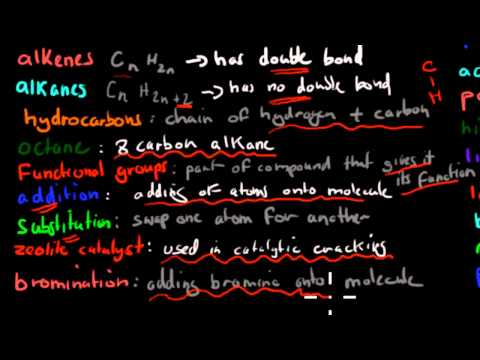 alkenes CnH2n → has double bond
alkanes CnH2n+2 → has no double bond
hydrocarbons: chain of hydrogen + carbon
octane: 8 carbon alkane
Functional groups: part of compound that gives it its function
addition: adding of atoms onto molecule
substitution: swap one atom for another
zeolite catalyst: used in catalytic cracking
bromination: adding bromine onto molecule
C
H